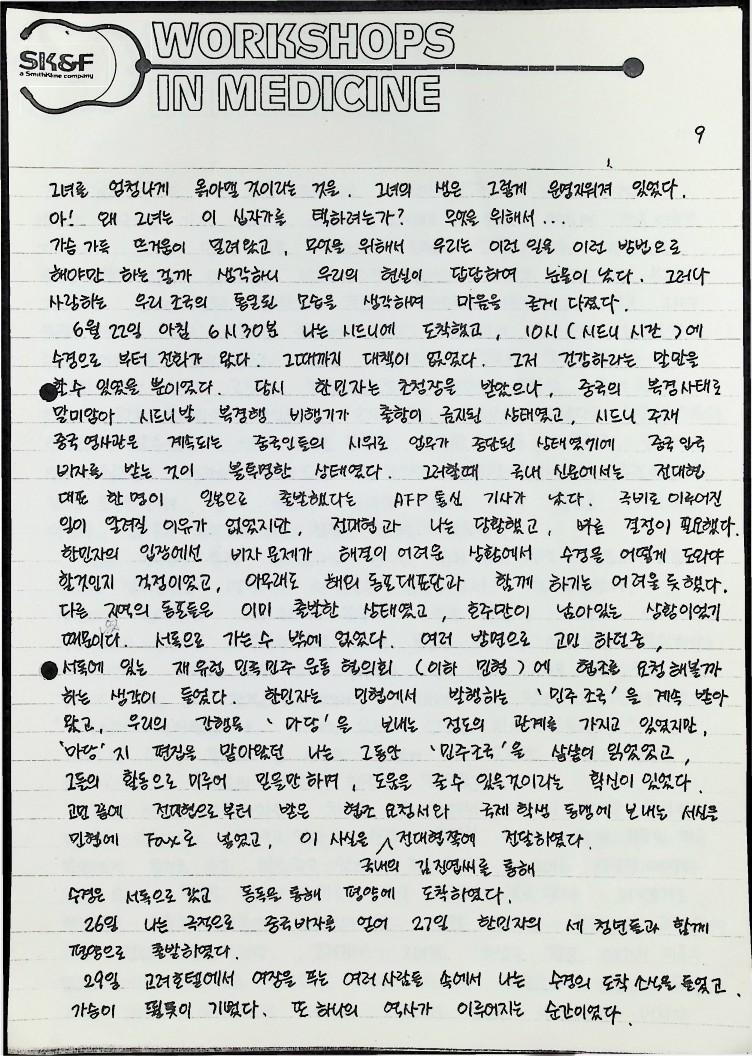 SK&F
a SmithKline company
WORKSHOPS
IN MEDICINE
9
그녀를 엄청나게 옭아맬 것이라는 것을. 그녀의 생은 그렇게 운명지워져 있었다.
아! 왜 그녀는 이 십자가를 택하려는가? 무엇을 위해서...
가슴 가득 뜨거움이 밀려왔고, 무엇을 위해서 우리는 이런 일을 이런 방법으로
해야만 하는 걸까 생각하니 우리의 현실이 답답하여 눈물이 났다. 그러나
사랑하는 우리 조국의 통일된 모습을 생각하며 마음을 굳게 다졌다.
6월 22일 아침 6시 30분 나는 시드니에 도착했고, 10시 (시드니 시간)에
수경으로 부터 전화가 왔다. 그때까지 대책이 없었다. 그저 건강하라는 말만을
할 수 있었을 뿐이었다. 당시 한민자는 초청장을 받았으나, 중국의 북경사태로
말미암아 시드니발 북경행 비행기가 출항이 금지된 상태였고, 시드니 주재
중국 영사관은 계속되는 중국인들의 시위로 업무가 중단된 상태였기에 중국 입국
비자를 받는 것이 불투명한 상태였다. 그러할때 국내 신문에서는 전대협
대표 한명이 일본으로 출발했다는 AFP 통신 기사가 났다. 극비로 이루어진
일이 알려질 이유가 없었지만, 전대협과 나는 당황했고, 빠른 결정이 필요했다.
한민자의 입장에선 비자 문제가 해결이 어려운 상황에서 수경을 어떻게 도와야
할것인지 걱정이었고, 아무래도 해외 동포대표단과 함께 하기는 어려울 듯했다.
다른 지역의 동포들은 이미 출발한 상태였고, 호주만이 남아있는 상황이었기
때문이다. 서독으로 가는수 밖에 없었다. 여러 방면으로 고민 하던중,
서독에 있는 재유럽 민족민주 운동 협의회 (이하 민협)에 협조를 요청해볼까
하는 생각이 들었다. 한민자는 민협에서 발행하는 '민주조국'을 계속 받아
왔고, 우리의 간행물 '마당'을 보내는 정도의 관계를 가지고 있었지만,
'마당'지 편집을 맡아왔던 나는 그동안 '민주조국'을 샅샅이 읽었었고,
그들의 활동으로 미루어 믿을만하며, 도움을 줄수 있을것이라는 확신이 있었다.
고민 끝에 전대협으로부터 받은 협조 요청서와 국제 학생 동맹에 보내는 서신을
민협에 Fax로 넣었고, 이 사실은 전대협쪽에 전달하였다.
국내의 김진엽씨를 통해
수경은 서독으로 갔고 동독을 통해 평양에 도착하였다.
26일 나는 극적으로 중국비자를 얻어 27일 한민자의 세 청년들과 함께
평양으로 출발하였다.
29일 고려호텔에서 여장을 푸는 여러 사람들 속에서 나는 수경의 도착 소식을 들었고
가슴이 떨듯이 기뻤다. 또 하나의 역사가 이루어지는 순간이었다.